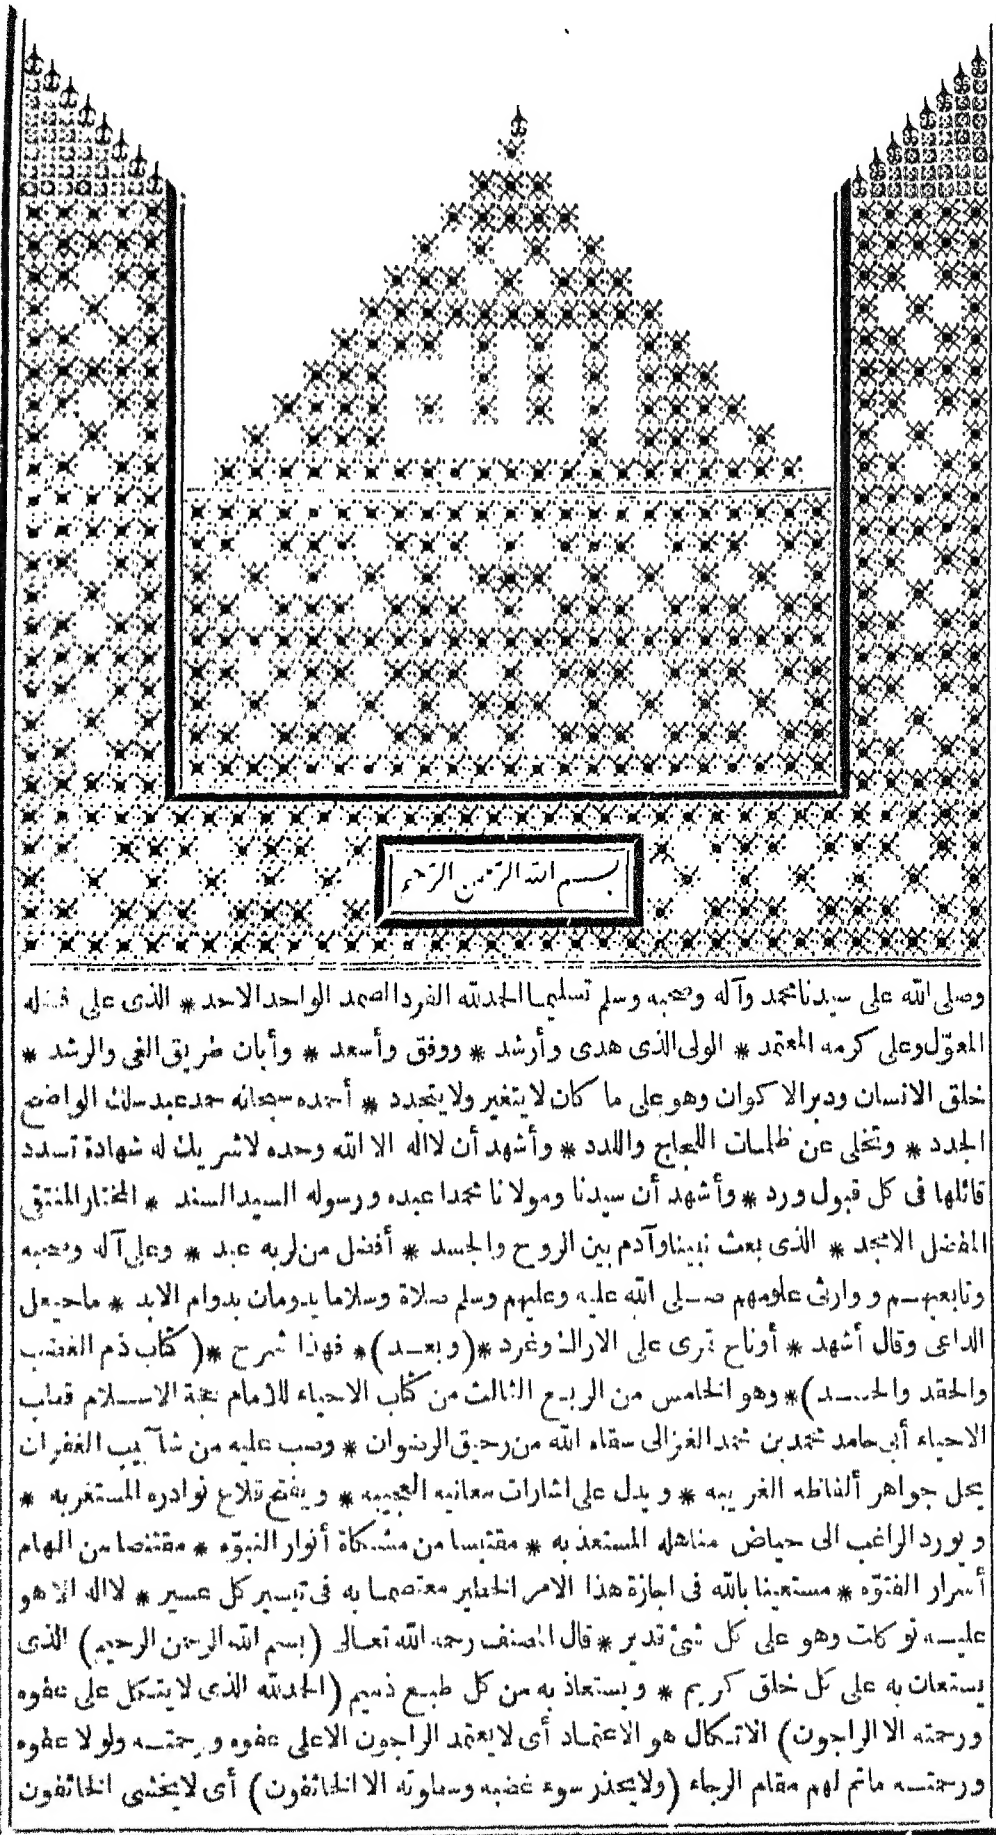 الله
بسم الله الرحمن الرحيم
وصلى الله على سيدنا محمد وآله وصحبه وسلم تسليما الحمد لله الفرد الصمد الواحد الاحد * الذى على فضله
المعوّل وعلى كرمه المعتمد * الولى الذى هدى وأرشد * ووفق وأسعد * وأبان طريق الغى والرشد *
خلق الانسان ودبر الاكوان وهو على ما كان لا يتغير ولا يتجدد * أحمده سبحانه حمد عبد سلك الواضح
الجدد * وتخلى عن ظلمات اللجاج واللدد * وأشهد أن لا اله الا الله وحده لا شريك له شهادة تسدد
قائلها فى كل قبول ورد * وأشهد أن سيدنا ومولانا محمدا عبده ورسوله السيد السند * المختار المنتقى
المفضل الامجد * الذى بعث نبينا وآدم بين الروح والجسد * أفضل من لربه عبد * وعلى آله وصحبه
وتابعيهم ووارثى علومهم صلى الله عليه وعليهم وسلم صلاة وسلاما يدومان بدوام الابد * ما حيعل
الداعى وقال أشهد * أوناح قرى على الاراك وغرد * (وبعد) * فهذا شرح * (كتاب ذم الغضب
والحقد والحسد) * وهو الخامس من الربع الثالث من كتاب الاحياء للامام حجة الاسلام قطب
الاحياء أبى حامد محمد بن محمد الغزالى سقاه الله من رحيق الرضوان * وصب عليه من شآبيب الغفران
يحل جواهر ألفاظه الغريبه * ويدل على اشارات معانيه العجيبه * ويفتح قلاع نوادره المستغربه *
ويورد الراغب الى حياض مناهله المستعذبه * مقتبسا من مشكاة أنوار النبوّه * مقتنصا من الهام
أسرار الفتوّه * مستعينا بالله فى اجازة هذا الامر الخطير معتصما به فى تيسير كل عسير * لا اله الا هو
عليه توكلت وهو على كل شئ قدير * قال المصنف رحمه الله تعالى (بسم الله الرحمن الرحيم) الذى
يستعان به على كل خلق كريم * ويستعاذ به من كل طبع ذميم (الحمد لله الذى لا يتكل على عفوه
ورحمته الا الراجون) الاتكال هو الاعتماد أى لا يعتمد الراجون الا على عفوه ورحمته ولولا عفوه
ورحمته ما تم لهم مقام الرجاء (ولا يحذر سوء غضبه وسطوته الا الخائفون) أى لا يخشى الخائفون